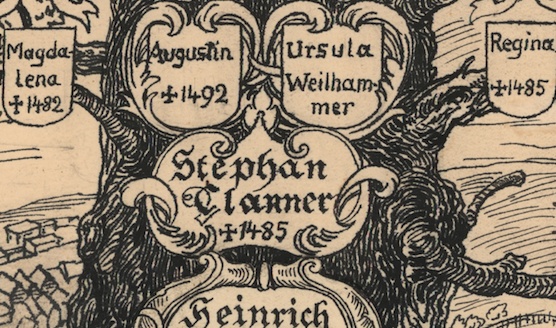 Magda-
lena
✝1482
Augustin
✝1492
Ursula
Weilham-
mer
Regina
✝1485
Stephan
Clanner
✝1485
Heinrich